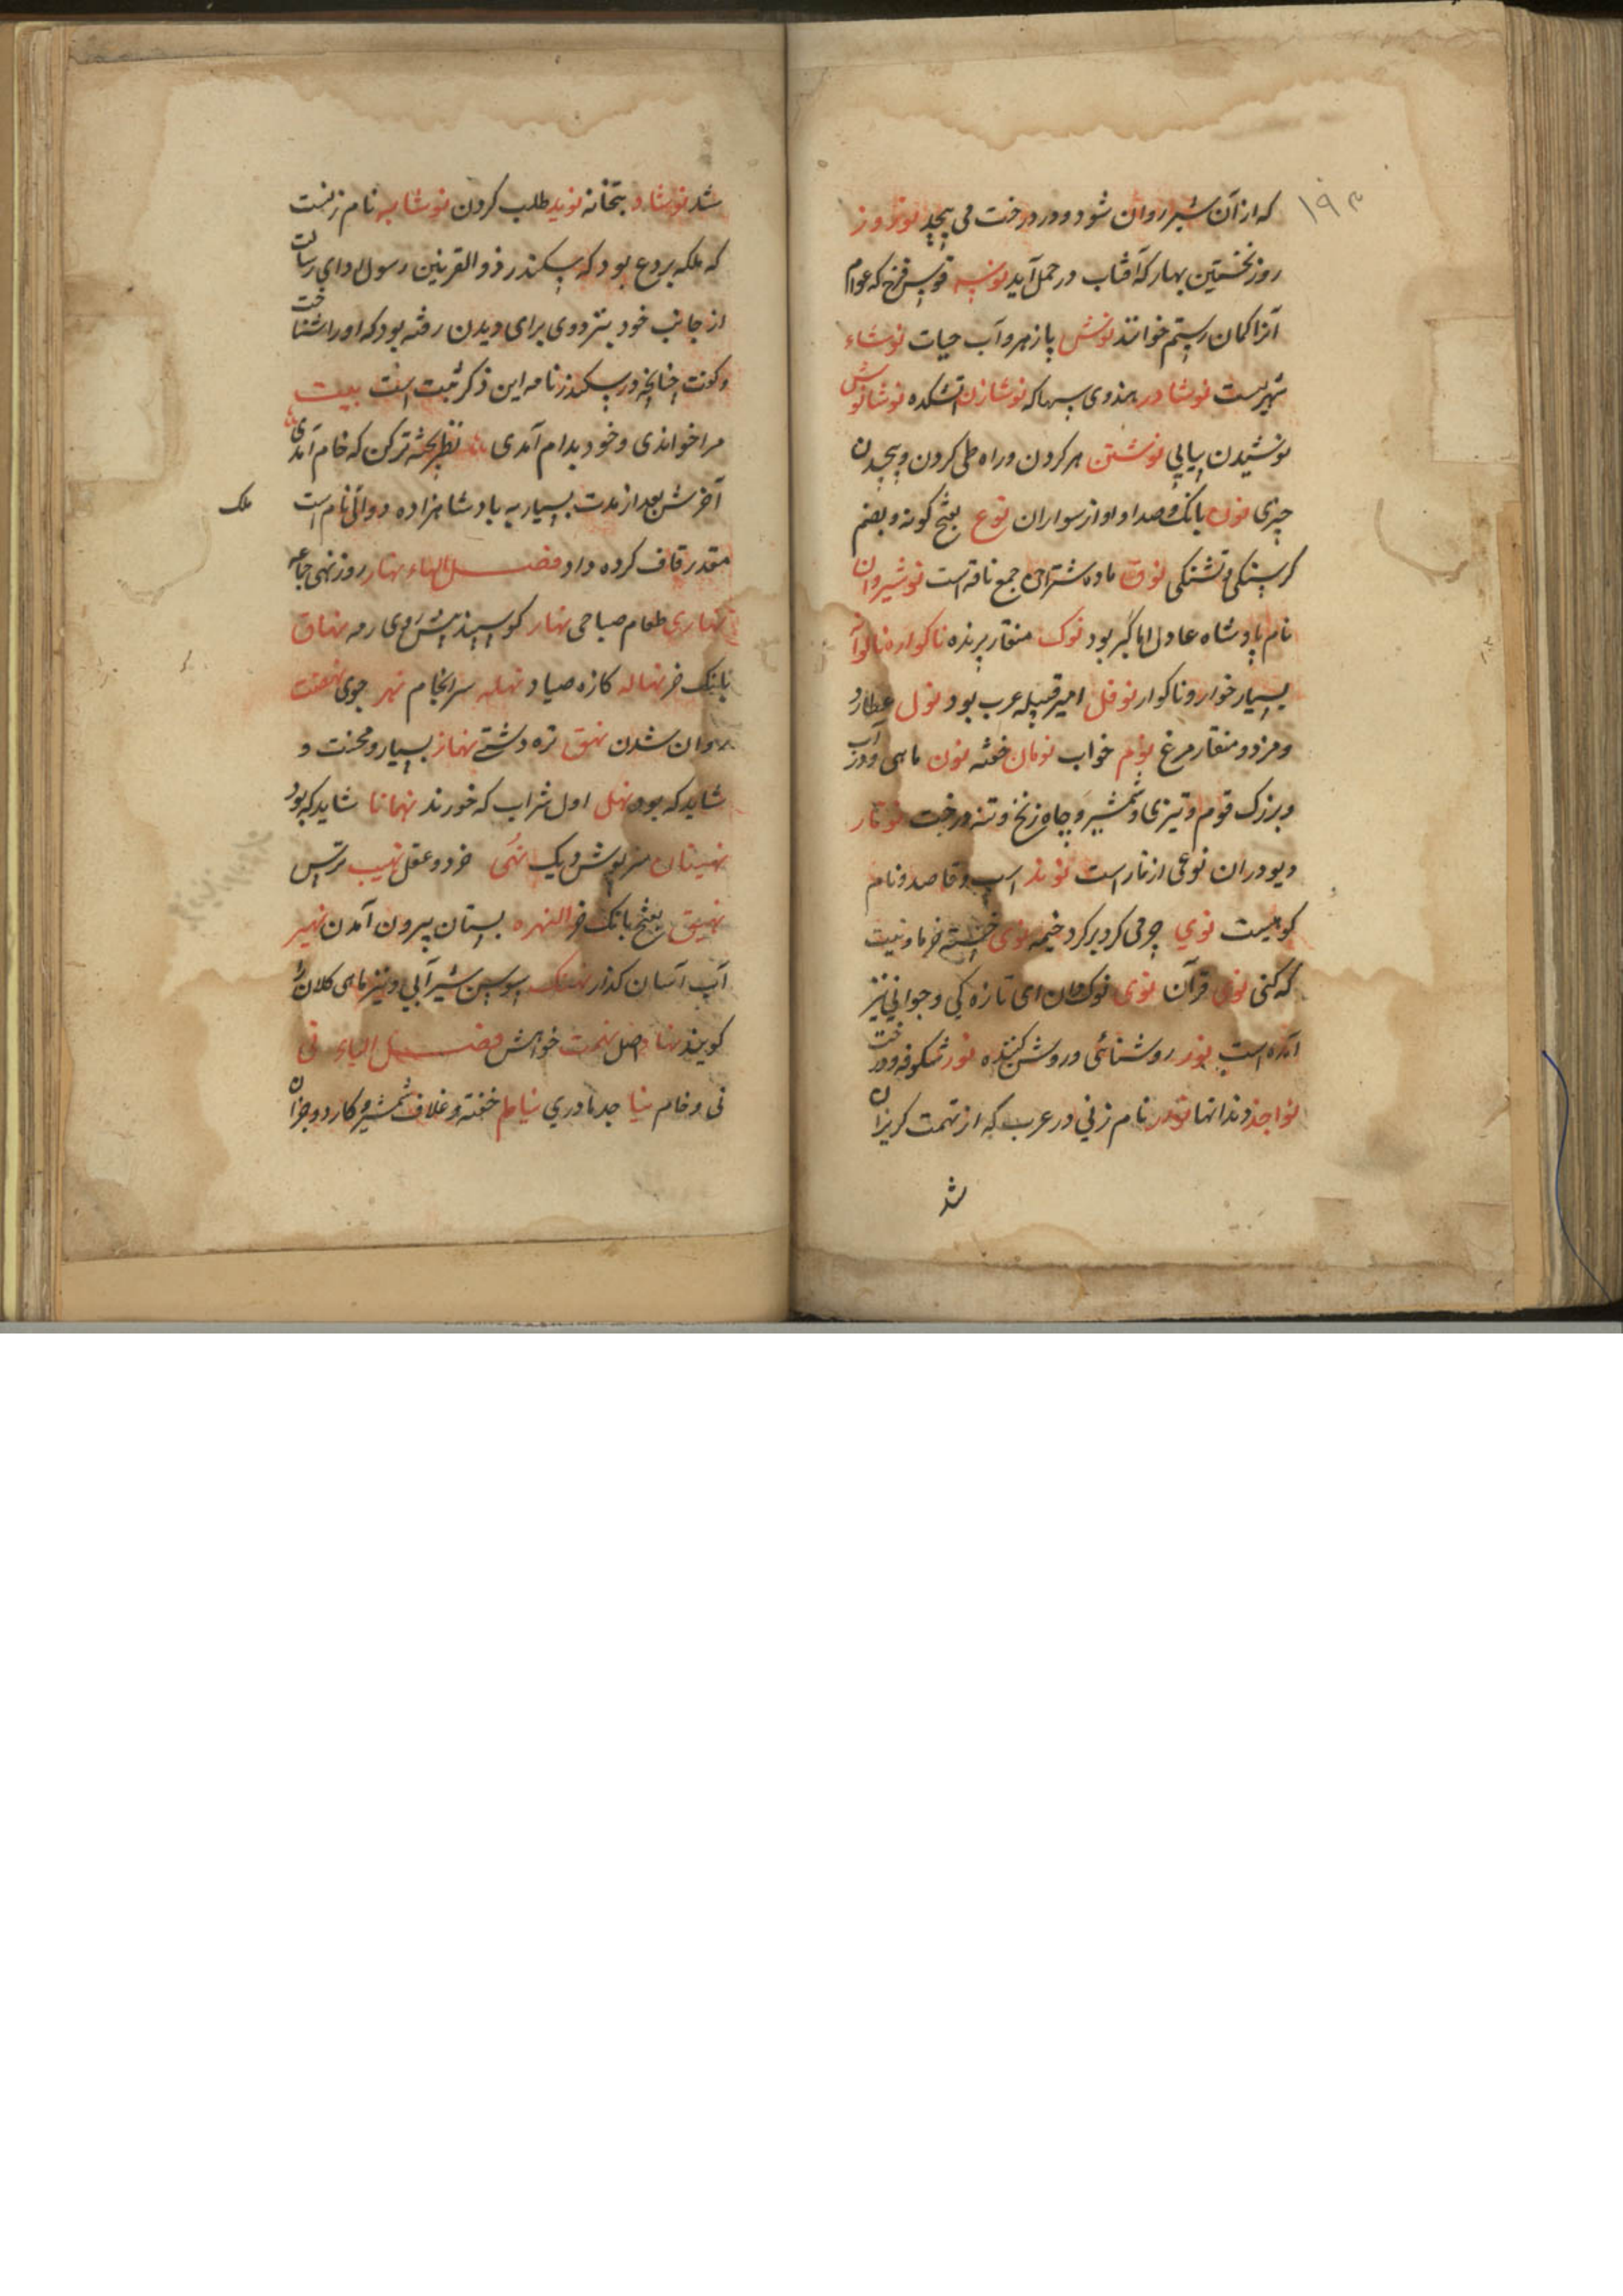 ۱۹۳
که ازان شیر روان شود و در درخت می پیچد نوروز
روز نخستین بهار که آفتاب در حمل آید نوسه قوس قزح که عوام
آنرا کمان رستم خوانند نوش پازهر و آب حیات نوشاد
شهریست نوشادر هندوی سهاکه نوشازن آتشکده نوشانوش
نوشیدن پیاپی نوشتن هر کردن و راه طی کردن و پیچیدن
چیزی نون بانک و صدا و اواز سواران نوع بفتح کونه و بضم
کرسنکی و تشنکی نوق ماده شتران جمع ناقه است نوشیروان
نام پادشاه عادل اما گبر بود نوک منقار پرنده ناکواره نالوا
بسیار خوار و ناکوار نوفل امیر قبیله عرب بود نول عطارد
و مزد و منقار مرغ نوم خواب نومان خفته نون ماهی و درآب
و بزرک قوم و تیزی و شمشیر و چاه زنخ و تنه درخت نونار
و یودران نوعی از نار است نوند اسپ و قاصد و نام
کوهیست نوی چرمی کرد بر کرد خیمه نوی خسته خرما و نیت
که کنی نوی قرآن نوی نوک مان ای تازه کی و جوانی نیز
آمده است نور روشنائی و روشن کننده نور شکوفه درخت
نواجذ دندانها نودر نام زنی در عرب که از تهمت کریزان
شد
شد نوشاد بتخانه نوید طلب کردن نوشابه نام زنیست
که ملکه بردع بود که سکندر ذو القرنین رسول وای رسالت
از جانب خود بنزد وی برای دیدن رفته بود که او را شناخت
و کونت چنانچه در سکندرنامه این ذکر ثبت است بیت
مرا خواندی و خود بدام آمدی نظر پخته تر کن که خام آمدی
آخرش بعد از مدت بسیار به پادشاهزاده دوالی نام است ملک
مقدر قاف کرده داد فصل الهاء نهار روز نهی جماعه
نهاری طعام صباحی نهار کوسپند پیش روی رمه نهاق
بانک خر نهاله کازه صیاد نهله سرانجام نهر جوی نهضت
روان شدن نهق تره دشتی نهماز بسیار و محنت و
شاید که بود نهل اول شراب که خورند نهمانا شاید که بود
نهینان سرپوش دیک نهی خرد و عقل نهیب ترس
نهیق بفتح بانک خر النهره بستان بیرون آمدن نهیر
آب آسان کذار نهنک سوسن شیر آبی و نیز ماهی کلان را
کویند نهاد اصل نهمت خواهش فصل الیاء نی
نی و خام نیا جد مادری نیام خفته و غلاف شمشیر و کارد و جزان